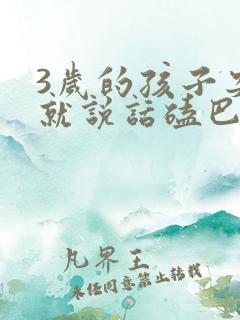 3歲的孩子
就説話磕巴
凡界王
未经同意禁止转载